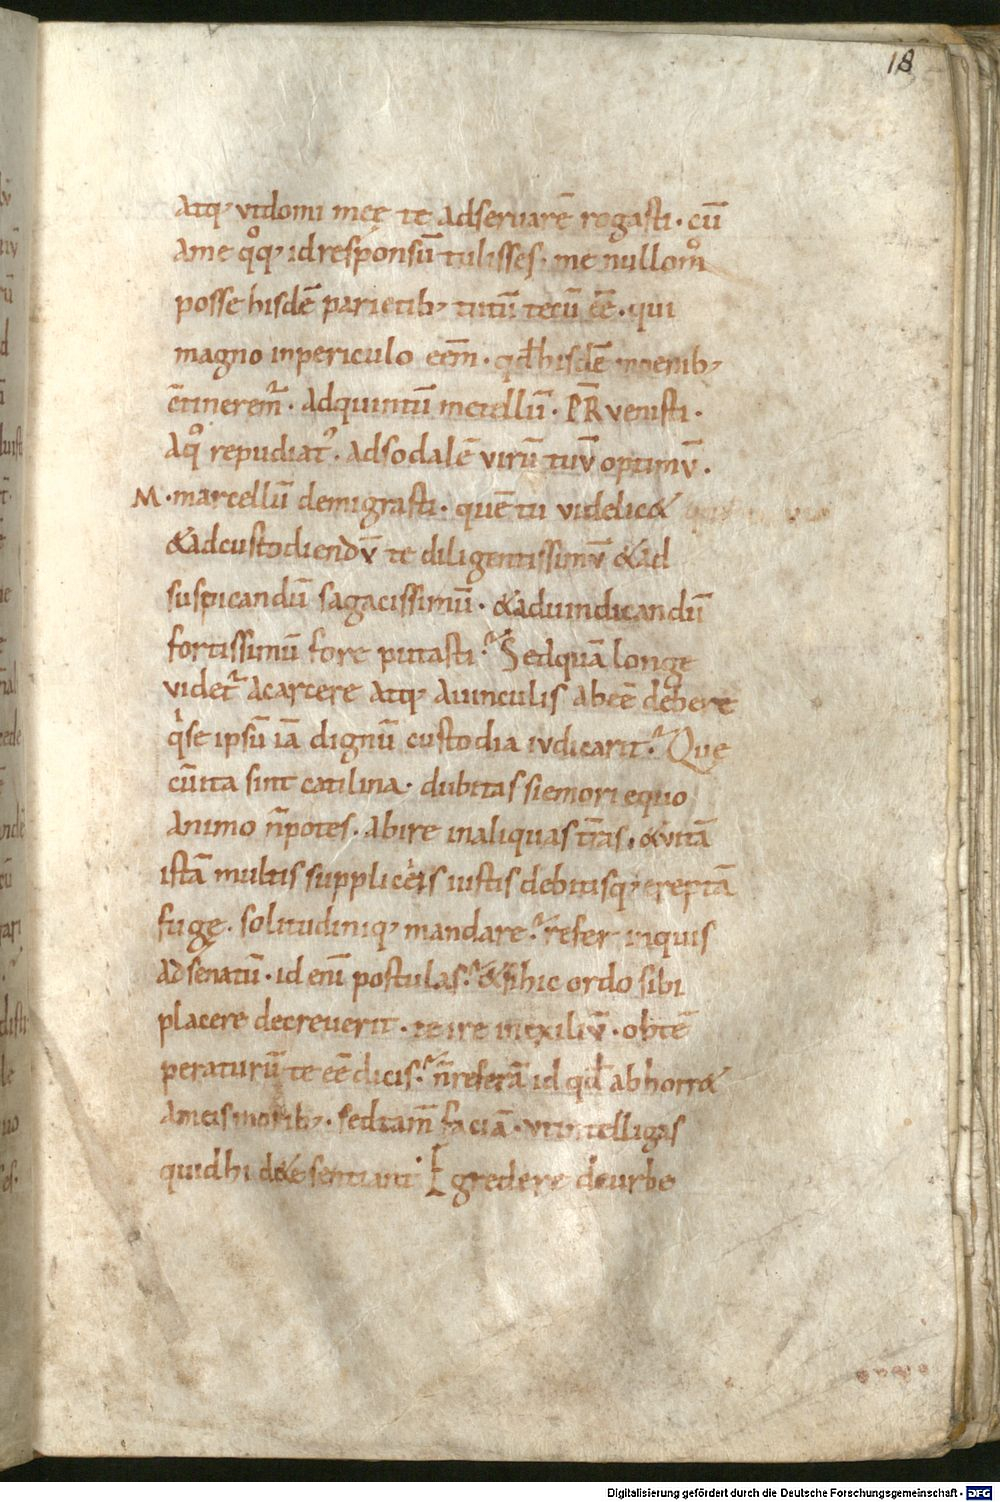 18
Atq; vt domi meę te adseruarē rogasti. cū
Ame qͦq; id responsū tulisses. me nullom̊
posse hisdē parietib; tutū tecū eē. qui
magno inpericulo eēm. qđ hisdē moenib;
c̄tineremᷣ. Adquintū metellū. P̄R venisti.
Aqͦ repudiatꝰ. Adsodalē virū tuv̄ optimv̄.
M. marcellū demigrasti. quē tu videlic&
&adcustodiendv̄ te diligentissimv̄ &ad
suspicandū sagacissimū. &aduindicandū
fortissimū fore putasti? Sedquā longe
videtᷣ Acarcere Atq; Auinculis Abeē debere
qͥse ipsū iā dignū custodia iudicarit? Que
cūita sint catilina. dubitas siemori equo
Animo n̄potes. Abire inaliquas tr̄as. &vitā
istā multis suppliciis iustis debitisq; ereptā
fugę. solitudiniq; mandare? refer inquis
Adsenatū. id enī postulas? &sihic ordo sibi
placere decreuerit. te ire inexiliv̄. obtē
peraturū te eē dicis? n̄referā id qđ abhorr&
Ameis morib;. sedtam̄ faciā. vtintelligas
quidhi de&e sentiant. Egredere deurbe
Digitalisierung gefördert durch die Deutsche Forschungsgemeinschaft - DFG